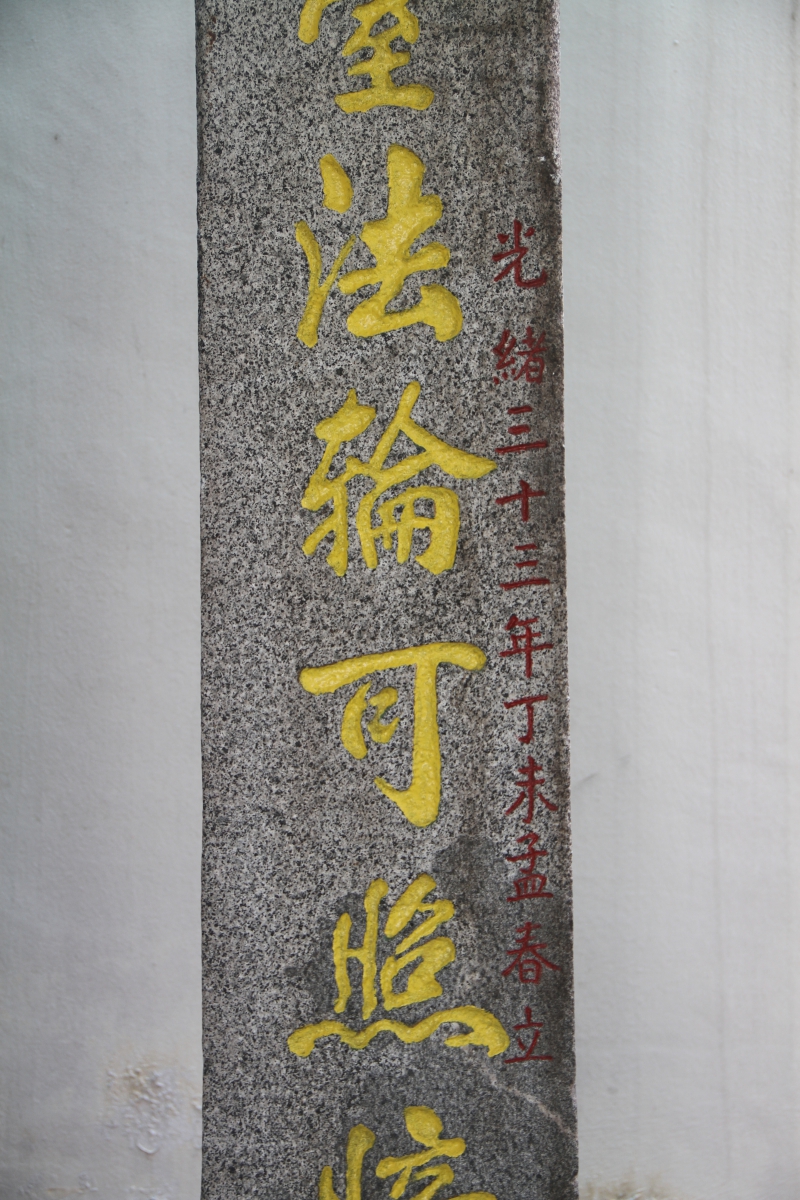 光緒三十三年丁未孟春立
法輪可照